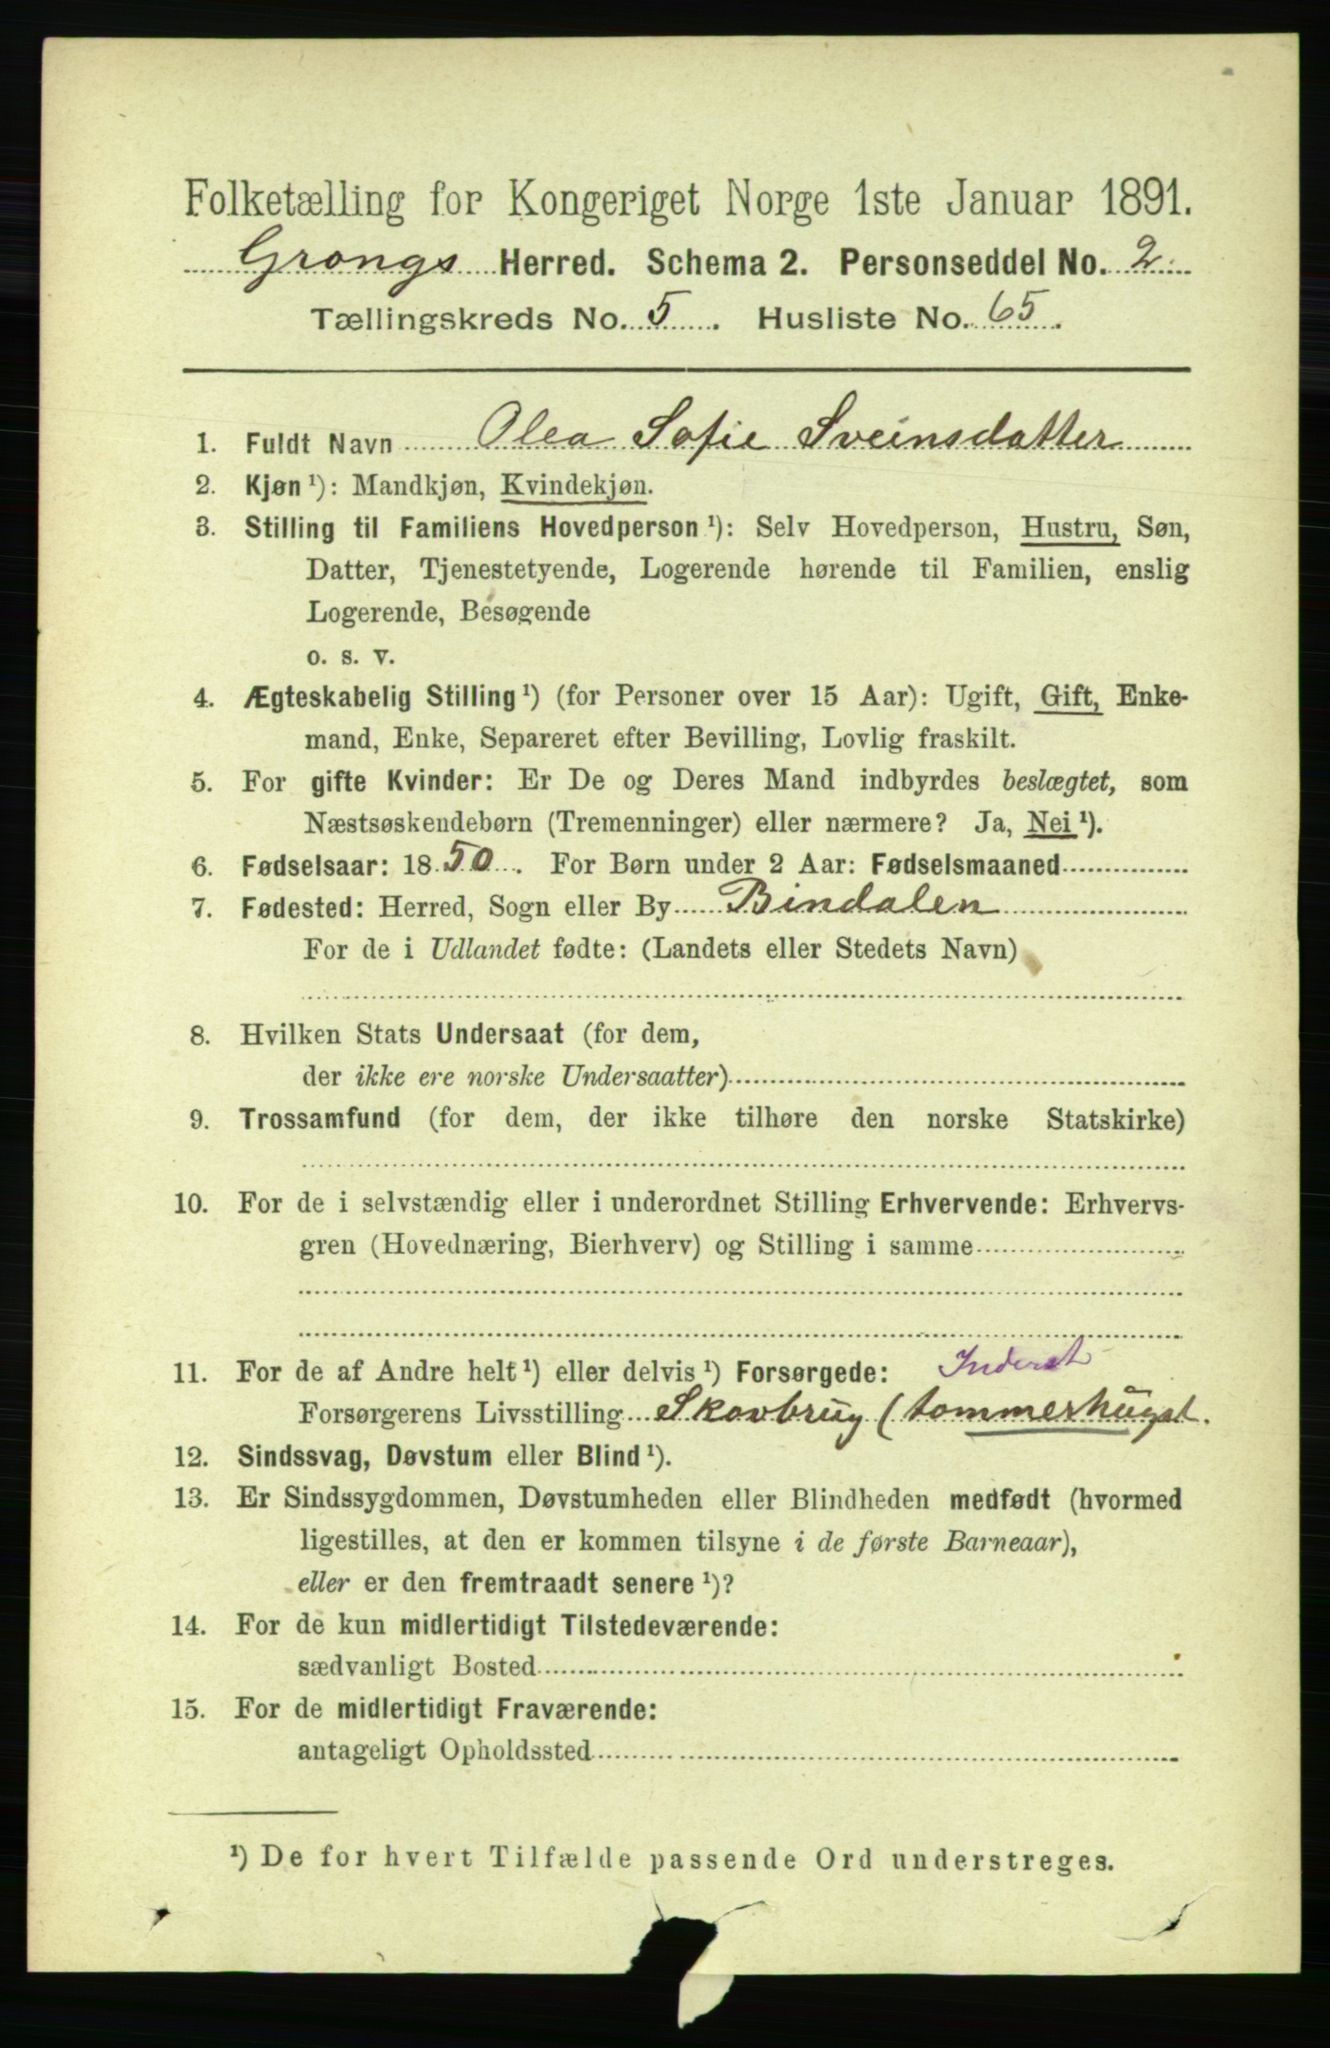 Folketælling for Kongeriget Norge 1ste Januar 1891.
Grongs Herred. Schema 2. Personseddel No. 2
Tællingskreds No. 5. Husliste No. 65.
1. Fuldt Navn Olea Sofie Sveinsdatter
2. Kjøn ¹): Mandkjøn, Kvindekjøn.
3. Stilling til Familiens Hovedperson ¹): Selv Hovedperson, Hustru, Søn,
Datter, Tjenestetyende, Logerende hørende til Familien, enslig
Logerende, Besøgende
o. s. v.
4. Ægteskabelig Stilling ¹) (for Personer over 15 Aar): Ugift, Gift, Enke-
mand, Enke, Separeret efter Bevilling, Lovlig fraskilt.
5. For gifte Kvinder: Er De og Deres Mand indbyrdes beslægtet, som
Næstsøskendebørn (Tremenninger) eller nærmere? Ja, Nei ¹).
6. Fødselsaar: 1850. For Børn under 2 Aar: Fødselsmaaned
7. Fødested: Herred, Sogn eller By Bindalen
For de i Udlandet fødte: (Landets eller Stedets Navn)
8. Hvilken Stats Undersaat (for dem,
der ikke ere norske Undersaatter)
9. Trossamfund (for dem, der ikke tilhøre den norske Statskirke)
10. For de i selvstændig eller i underordnet Stilling Erhvervende: Erhvervs-
gren (Hovednæring, Bierhverv) og Stilling i samme
11. For de af Andre helt ¹) eller delvis ¹) Forsørgede: Inderst
Forsørgerens Livsstilling Skovbrug (tommerhugst.
12. Sindssvag, Døvstum eller Blind ¹).
13. Er Sindssygdommen, Døvstumheden eller Blindheden medfødt (hvormed
ligestilles, at den er kommen tilsyne i de første Barneaar),
eller er den fremtraadt senere ¹)?
14. For de kun midlertidigt Tilstedeværende:
sædvanligt Bosted
15. For de midlertidigt Fraværende:
antageligt Opholdssted
¹) De for hvert Tilfælde passende Ord understreges.